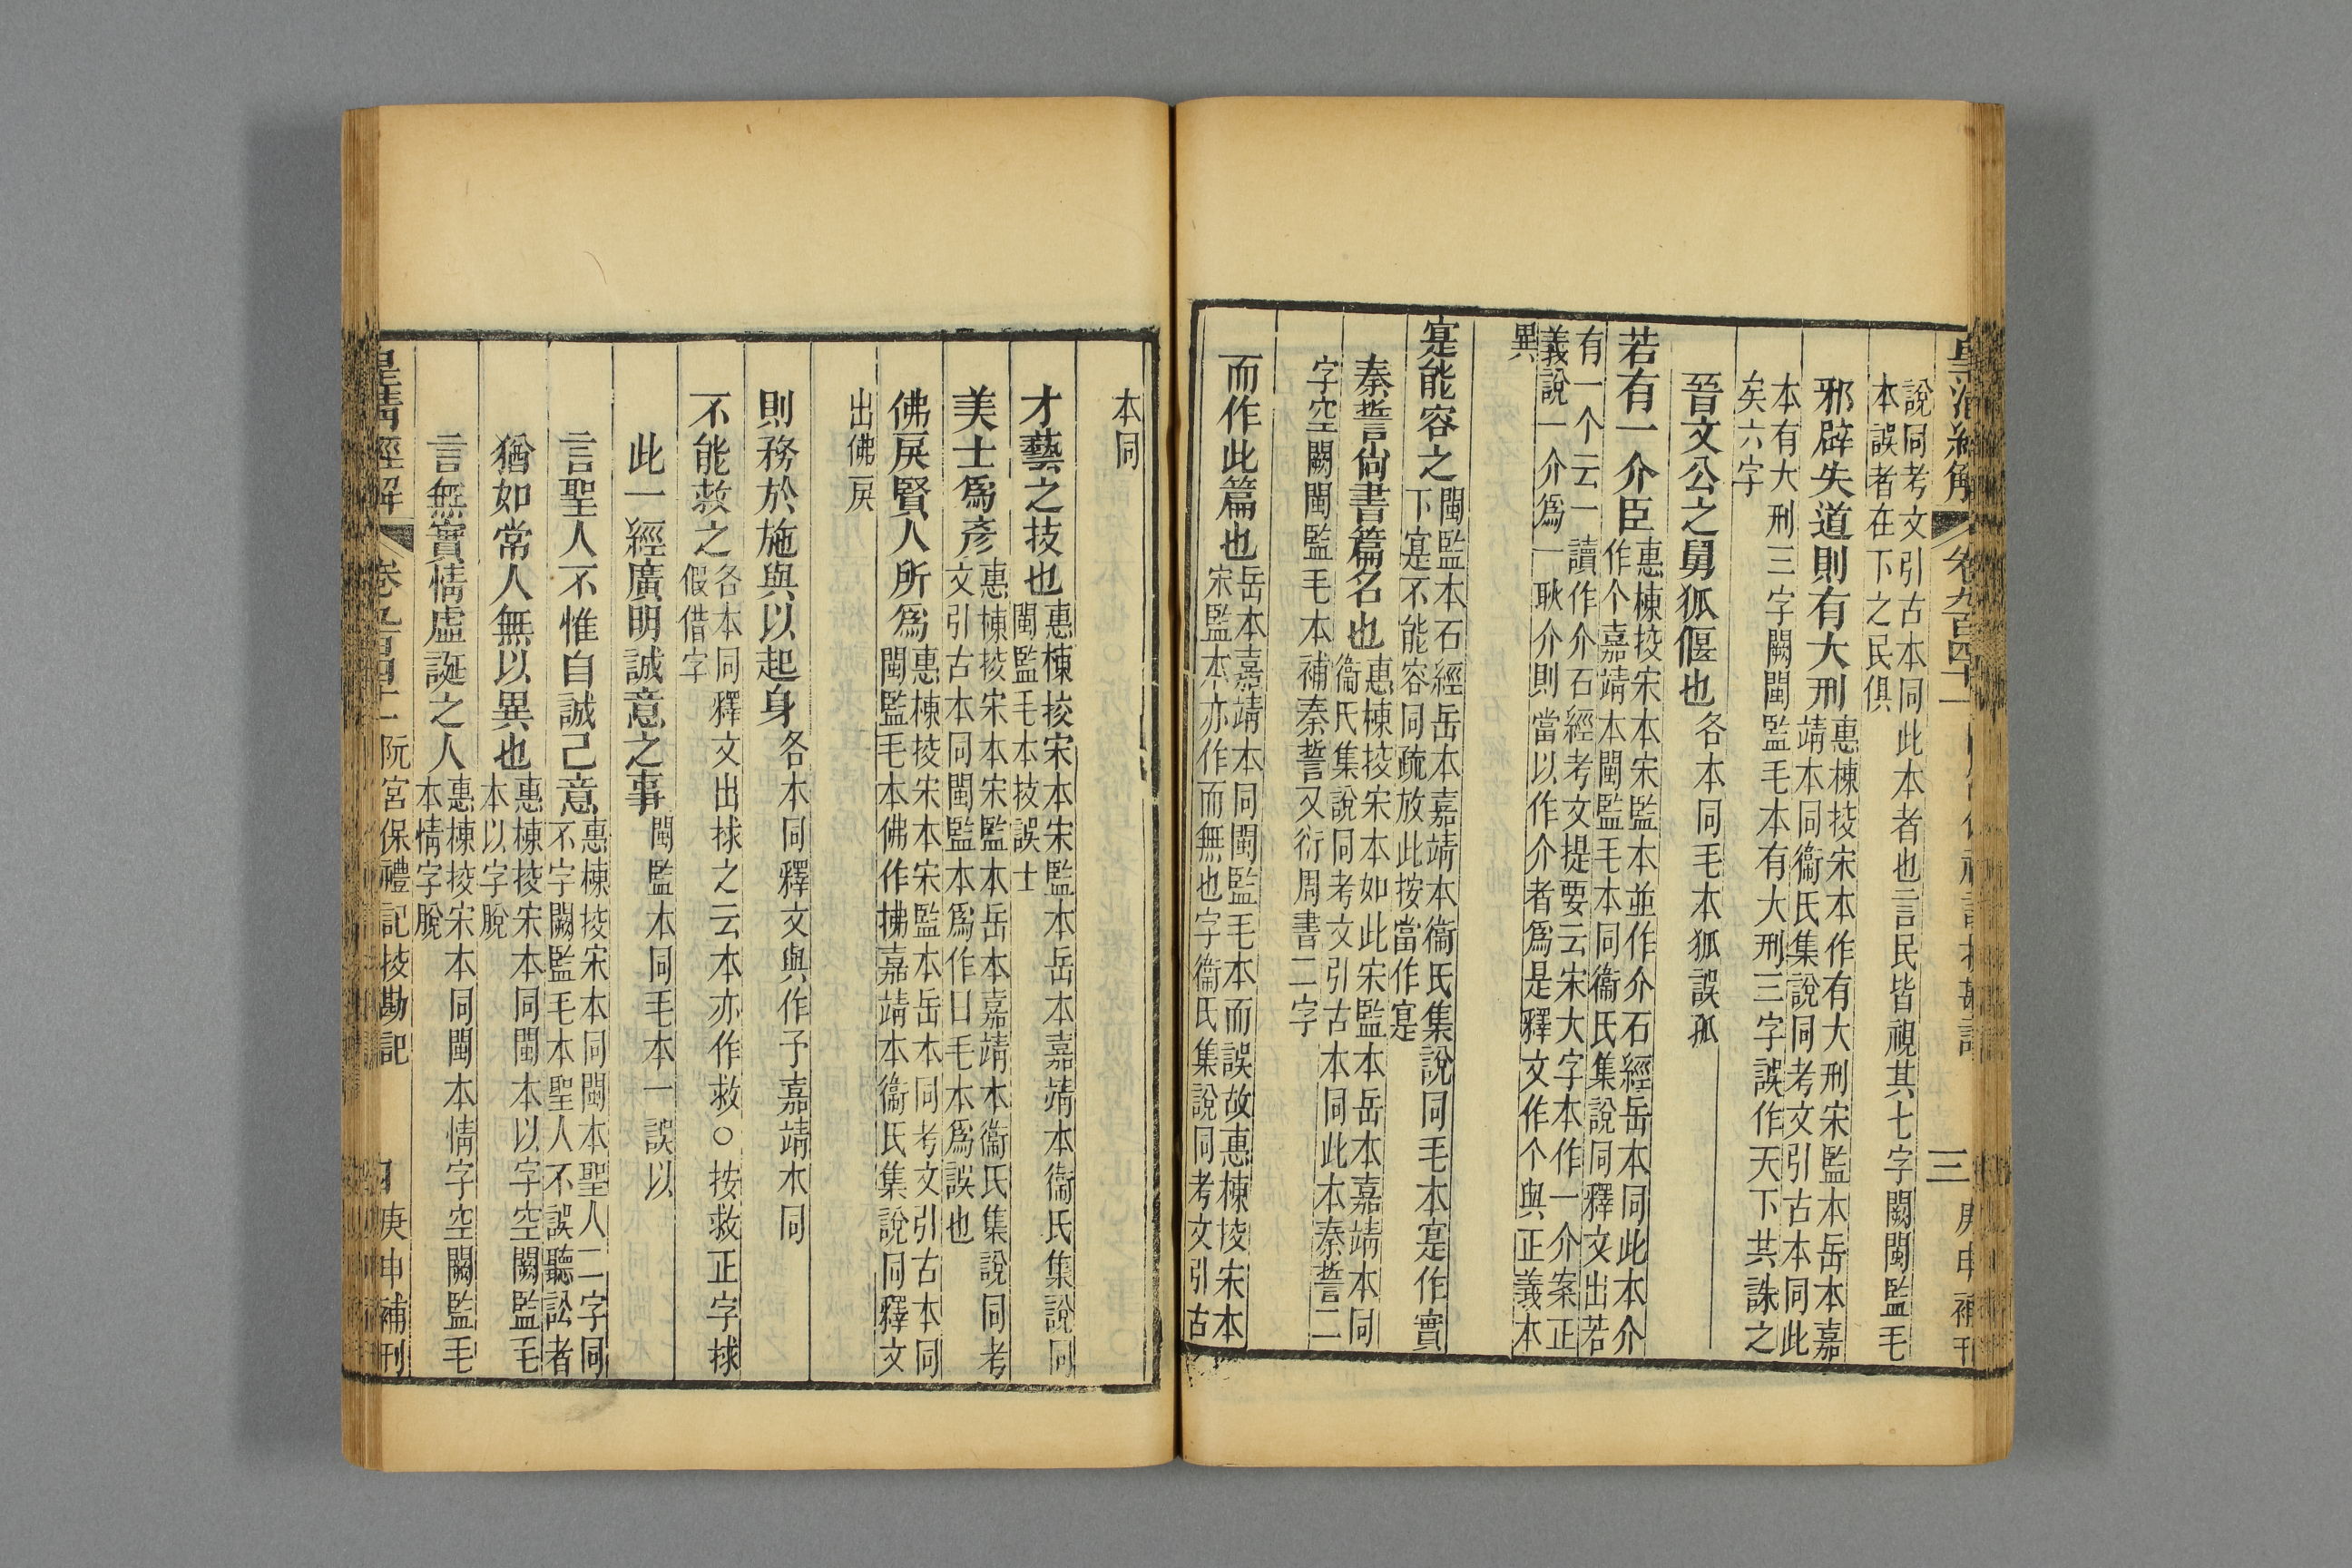 皇清經解 卷九百四十二 三 庚申補刊
說同考文引古本同此本者也三言民皆視其七字闕閩監毛
本誤者在下之民俱
邪辟失道則有大刑惠棟挍宋本作有大刑宋監本岳本嘉
靖本同衞氏集說同考文引古本同此
本有大刑三字闕閩監毛本有大刑三字誤作天下共誅之
矣六字
晉文公之舅狐偃也各本同毛本狐誤孤
若有一介臣惠棟挍宋本宋監本並作介石經岳本同此本介
作个嘉靖本閩監毛本同衞氏集說同釋文出若
有一个云一讀作介石經考文提要云宋大字本作一介案正
義說一介爲一耿介則當以作介者爲是釋文作个與正義本
異
寔能容之閩監本石經岳本嘉靖本衞氏集說同毛本寔作實
下寔不能容同疏放此按當作寔
秦誓尙書篇名也惠棟挍宋本如此宋監本岳本嘉靖本同
衞氏集說同考文引古本同此本秦誓二
字空闕閩監毛本補秦誓又衍周書二字
而作此篇也岳本嘉靖本同閩監毛本而誤故惠棟挍宋本
宋監本亦作而無也字衞氏集說同考文引古
本同
才藝之技也惠棟挍宋本宋監本岳本嘉靖本衞氏集說同
閩監毛本技誤士
美士爲彥惠棟挍宋本宋監本岳本嘉靖本衞氏集說同考
文引古本同閩監本爲作曰毛本爲誤也
佛戾賢人所爲惠棟挍宋本宋監本岳本同考文引古本同
閩監毛本佛作拂嘉靖本衞氏集說同釋文
出佛戾
則務於施與以起身各本同釋文與作予嘉靖本同
不能救之各本同釋文出捄之云本亦作救○按救正字捄
假借字
此一經廣明誠意之事閩監本同毛本一誤以
言聖人不惟自誠己意惠棟挍宋本同閩本聖人二字同
不字闕監毛本聖人不誤聽訟者
猶如常人無以異也惠棟挍宋本同閩本以字空闕監毛
本以字脫
言無實情虛誕之人惠棟挍宋本同閩本情字空闕監毛
本情字脫
皇清經解 卷九百四十二 阮宮保禮記挍勘記 庚申補刊